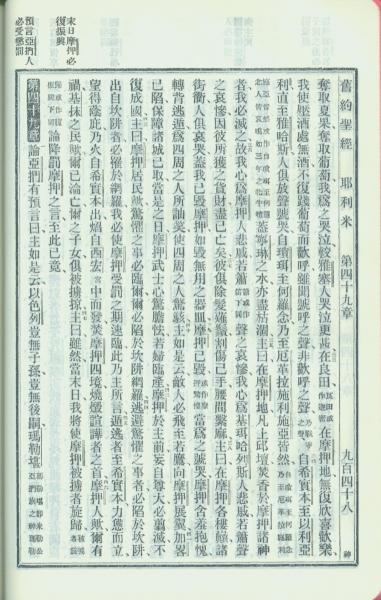 舊約聖經　耶利米　第四十九章　九百四十八　神
奪取夏果奪取葡萄我爲之哭泣較雅塞人哭泣更甚在良田在摩押地無復欣喜歡樂
我使壓酒處無酒不復踐葡萄而歡呼雖聞號呼之聲非歡呼之聲自希實本至以利亞
利直至雅哈斯人俱放聲號哭自瑣珥至何羅念乃至厄革拉施利施亞皆然
蓋寧琳之水亦盡枯涸主曰在摩押地凡上邱壇焚香於摩押諸神
者我必滅之故我心爲摩押人悲戚若簫聲之哀慘我心爲基珥哈列斯人悲戚若簫聲
之哀慘因彼所獲之貨財盡已亡矣彼俱除髮薙鬚割傷己手腰間繫麻主曰在摩押各樓巔諸
街衢人俱哀哭蓋我已毀摩押如毀無用之器皿摩押已毀當爲之號哭摩押含羞抱愧
轉背逃遁爲四周之人所訕笑使四周之人驚駭主如是云敵人必飛至若鷹向摩押展翼加畧
已陷保障諸城已取當是之日摩押武士心驚膽怯若婦臨產摩押於主前妄自尊大必翦滅不
復成國主曰摩押居民歟驚懼之事必臨爾爾必陷於坎阱網羅逃避驚懼之事者必陷於坎阱
出自坎阱者必罹於網羅我必使摩押受罰之期速臨此乃主所言遁逸者至希實本力憊而立
望得蔭庇乃火自希實本出焰自西宏中而發焚摩押四境諠譁者之首摩押人歟爾有
禍基抹之民歟爾已淪亡爾之子女俱被擄掠主曰雖然當末日我將使摩押被擄者旋歸
論降罰摩押之言至此已竟
第四十九章　論亞捫有預言曰主如是云以色列豈無子孫豈無後嗣瑪勒堪
末日摩押必
復振興
預言亞捫人
必受懲罰